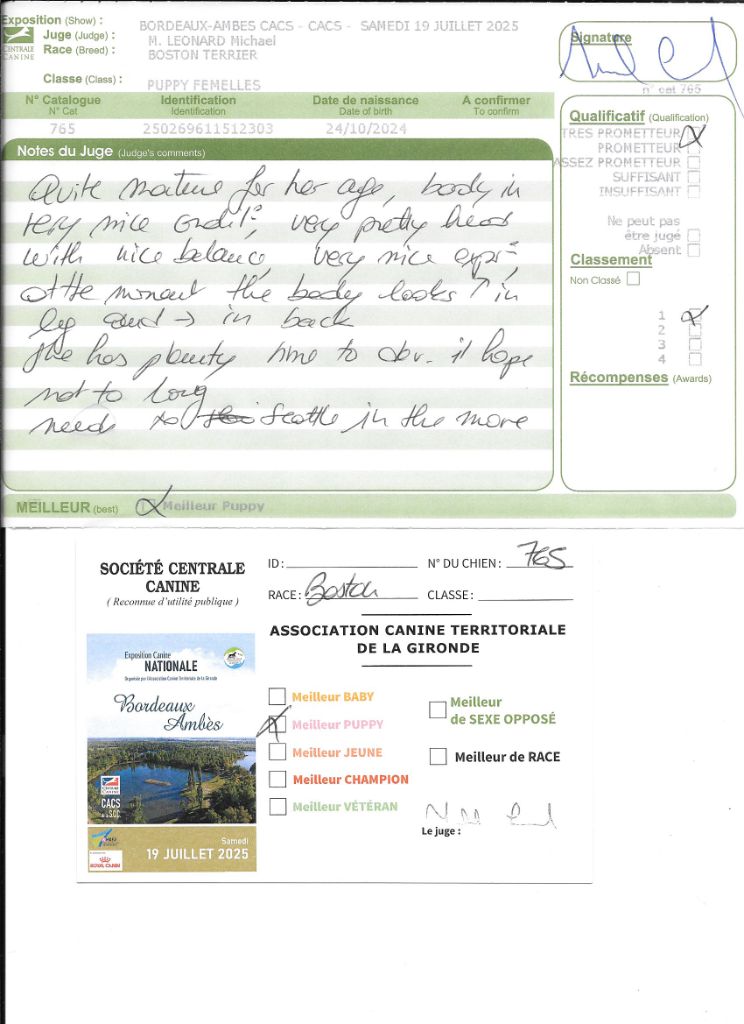 Exposition (Show) :
BORDEAUX-AMBES CACS - CACS - SAMEDI 19 JUILLET 2025
Juge (Judge) :
M. LEONARD Michael
Race (Breed) :
BOSTON TERRIER
CENTRALE
CANINE
Classe (Class) :
PUPPY FEMELLES
Signature
n° cat 765
N° Catalogue
N° Cat
765
Identification
Identification
250269611512303
Date de naissance
Date of birth
24/10/2024
A confirmer
To confirm
Notes du Juge (Judge's comments)
Quite mature for her age, body in
very nice condit°, very pretty head
with nice balance, very nice expr°,
at the moment the body looks ↑ in
leg and → in back
She has plenty time to dev. it hope
not to long
need to settle in the move
Qualificatif (Qualification)
TRES PROMETTEUR
PROMETTEUR
ASSEZ PROMETTEUR
SUFFISANT
INSUFFISANT
Ne peut pas
être jugé
Absent
Classement
Non Classé
1
2
3
4
Récompenses (Awards)
MEILLEUR (best)
Meilleur Puppy
SOCIÉTÉ CENTRALE
CANINE
( Reconnue d'utilité publique )
ID :
N° DU CHIEN : 765
RACE : Boston
CLASSE :
ASSOCIATION CANINE TERRITORIALE
DE LA GIRONDE
Exposition Canine
NATIONALE
Organisée par l'Association Canine Territoriale de la Gironde
Bordeaux
Ambès
CENTRALE
CANINE
CACS
Samedi
19 JUILLET 2025
ROYAL CANIN
Meilleur BABY
Meilleur PUPPY
Meilleur JEUNE
Meilleur CHAMPION
Meilleur VÉTÉRAN
Meilleur
de SEXE OPPOSÉ
Meilleur de RACE
Le juge :